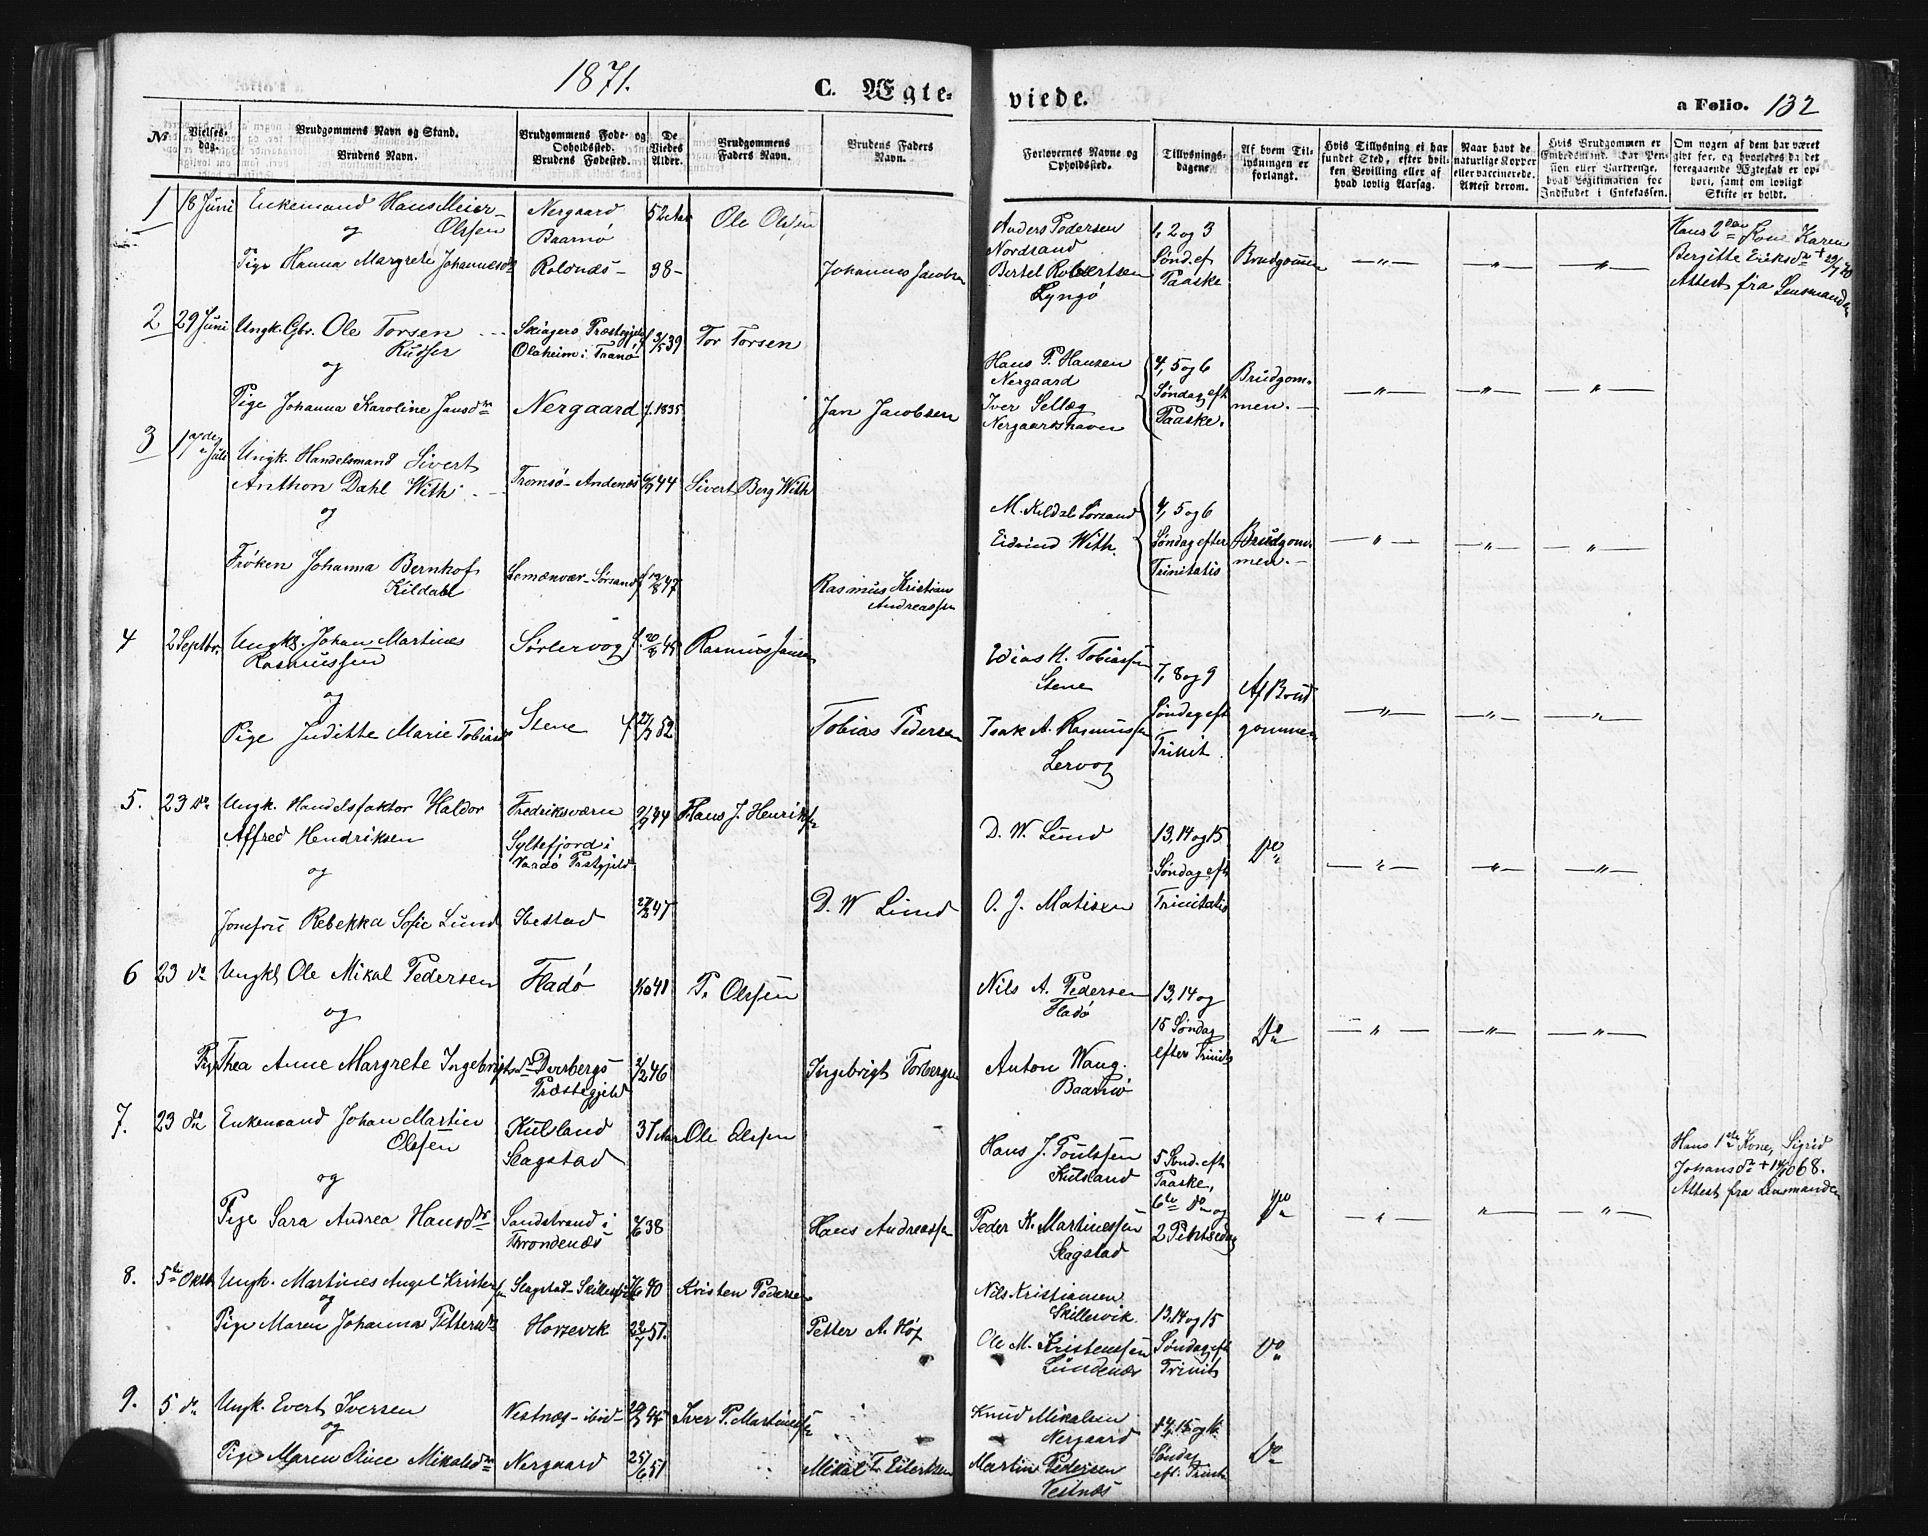 1871.
C. Ægte-
viede.
a Folio. 132
№
Vielses-
dag.
Brudgommens Navn og Stand.
Brudens Navn.
Brudgommens Føde- og
Opholdssted.
Brudens Fødested.
De
Viedes
Alder.
Brudgommens
Faders Navn.
Brudens Faders
Navn.
Forlovernes Navne og
Opholdssted.
Tillysnings-
dagene.
Af hvem Til-
lysningen er
forlangt.
Hvis Tillysning ei har
fundet Sted, efter hvil-
ken Bevilling eller af
hvad lovlig Aarsag.
Naar havt de
naturlige Kopper
eller vaccinerede.
Attest derom.
Hvis Brudgommen er
Embedsmand, har Pen-
sion eller Vartpenge,
hvad Legitimation for
Indskudet i Enkekassen.
Om nogen af dem har været
gift før, og hvorledes da det
foregaaende Ægteskab er op-
hørt, samt om lovligt
Skifte er holdt.
1
18 Juni
Enkemand Hans Meier
Olsen
og
Pige Hanna Margrete Johannesdr
Nergaard
Baarnø
Roldnæs
52 Aar
38
Ole Olsen
Johannes Jacobsen
Anders Pedersen
Nordsand
Bertel Robertsen
Lyngø
1, 2 og 3
Sønd. ef
Paaske
Brudgommen
Hans 2den Kone Karen
Bergitte Eriksdr
Attest fra Lensmanden
2
29 Juni
Ungk. Gbr. Ole Torsen
Rudser
og
Pige Johanna Karoline Jansdr
Skiagers Præstegjeld
Olaheim i Tranø
Nergaard
3/5 39
f. 1835
Tor Torsen
Jan Jacobsen
Hans P. Hansen
Nergaard
Iver Sellæg
Nergaardshavn
4, 5 og 6
Søndag eft
Paaske.
Brudgom-
men.
3
17de Juli
Ungk. Handelsmand Sivert
Anthon Dahl With
og
Frøken Johanna Bernhof
Kildahl
Tromsø - Andenæs
Lemænvær - Sørsand
44
47
Sivert Berg With
Rasmus Kristian
Andreassen
M. Kildal Sørsand
Eidvind With.
4, 5 og 6
Søndag efter
Trinitatis
Brudgom-
men.
4
2 Septbr.
Ungk. Johan Martines
Rasmussen
og
Pige Juditte Marie Tobiasdr
Sørlervog
Stene
f. 20/8 48
f 21/7 52
Rasmus Jansen
Tobias Pedersen
Edias H. Tobiassen
Stene
Isak A. Rasmussen
Lervog
7, 8 og 9
Søndag eft
Trinit
Af Brud
gommen
5.
23 do
Ungk. Handelsfaktor Haldor
Alfred Hendriksen
og
Jomfru Rebekka Sofie Lund
Fredriksværn
Syltefjord i
Vardø Præstgjeld
Ibestad
44
47
Hans J. Henriksen
D. W Lund
D. W. Lund
O. J. Matisen
13, 14 og 15
Søndag eft
Trinitatis
Do
6
23 do
Ungkl Ole Mikal Pedersen
og
Pige Thea Anne Margrete Ingebrigtsdr
Fladø
Dverbergs
Præstegjeld
41
46
P. Olsen
Ingebrigt Torbergsen
Nils A. Pedersen
Fladø
Anton Wang.
Baarnø
13, 14 og
15 Søndag
efter Trinits
Do
7.
23 do
Enkemand Johan Martin
Olsen
og
Pige Sara Andrea Hansdr
Kulsland
Slagstad
Sandstrand i
Throndenæs
37 Aar
38
Ole Olsen
Hans Andreassen
Hans J. Poulsen
Kulsland
Peder K. Martinessen
Slagstad
5 Sønd. eft
Paaske,
6te do og
2 Pintsedag
Do
Hans 1ste Kone, Sigrid
Johansdr + 14/10 68.
Attest fra Lensmanden
8.
5te Oktb.
Ungk. Martines Angel Kristensen
og
Pige Maren Johanna Pettersdr
Slagstad - Skillesvik
Horsevik
40
22/7 51.
Kristen Pedersen
Petter A. Høj
Nils Kristiansen
Skillesvik
Ole M. Kristenssen
Lundenæs
13, 14 og 15
Søndag eft
Trinit
Do
9.
5 do
Ungk. Evert Iversen
og
Pige Maren Oline Mikalsdr
Vestnæs - ibid -
Nergaard
45
25/6 51
Iver P. Martinessen
Mikal T. Eilertsen
Knud Mikalsen
Nergaard
Martin Pedersen
Vestnæs
14, 15 og 16
Søndag
eft. Trinit
Do